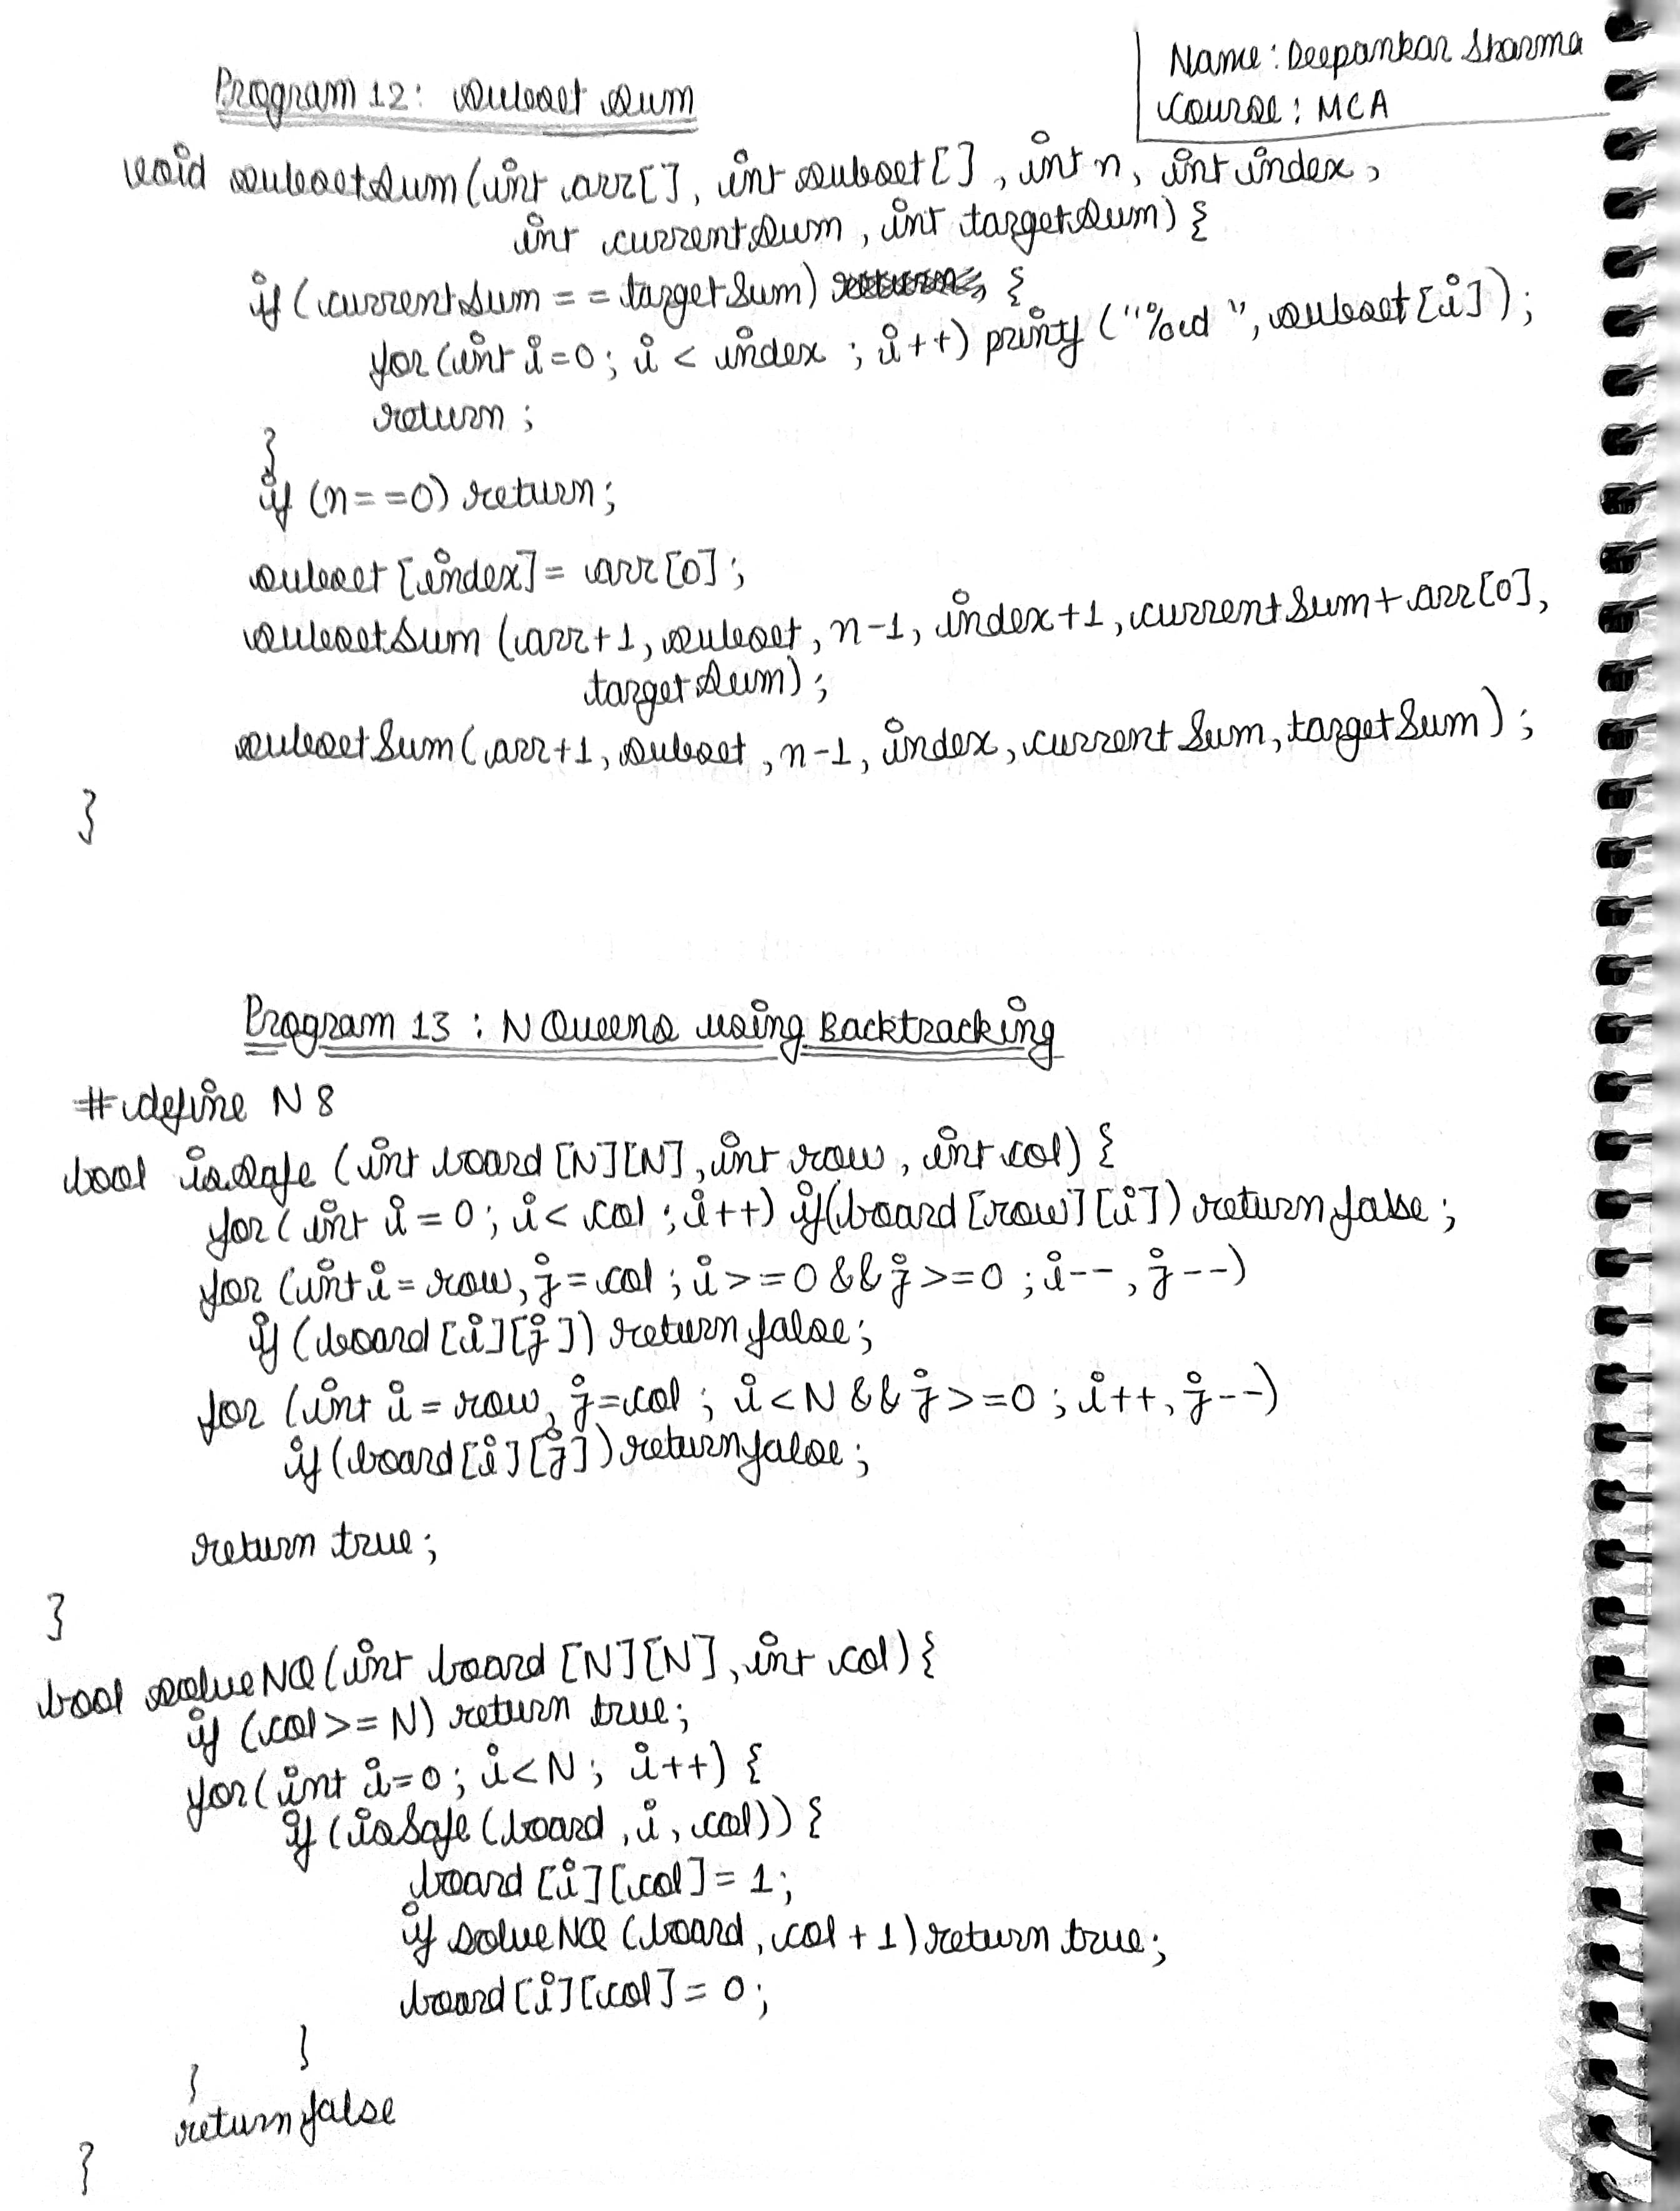 Name: Deepankar Sharma
Course: MCA
Program 12: subset sum
void subsetSum(int arr[], int subset[], int n, int index,
int currentSum, int targetSum) {
if (currentSum == targetSum) return; {
for(int i=0; i < index ; i++) printf ("%d ", subset[i]);
return ;
}
if (n==0) return;
subset [index] = arr[0];
subsetSum (arr+1, subset, n-1, index+1, currentSum+arr[0],
targetSum);
subsetSum(arr+1, subset, n-1, index, currentSum, targetSum);
}
Program 13 : N Queens using Backtracking
#define N 8
bool isSafe (int board [N][N], int row, int col) {
for( int i = 0; i < col ; i++) if(board [row][i]) return false;
for (int i = row, j = col ; i >= 0 && j >= 0 ; i--, j--)
if (board [i][j]) return false;
for (int i = row, j = col ; i < N && j >= 0 ; i++, j--)
if (board[i][j]) return false;
return true;
}
bool solveNQ (int board [N][N], int col) {
if (col >= N) return true;
for( int i=0; i<N; i++) {
if (isSafe (board, i, col)) {
board [i][col] = 1;
if solveNQ (board, col + 1) return true;
board [i][col] = 0;
}
}
return false
}